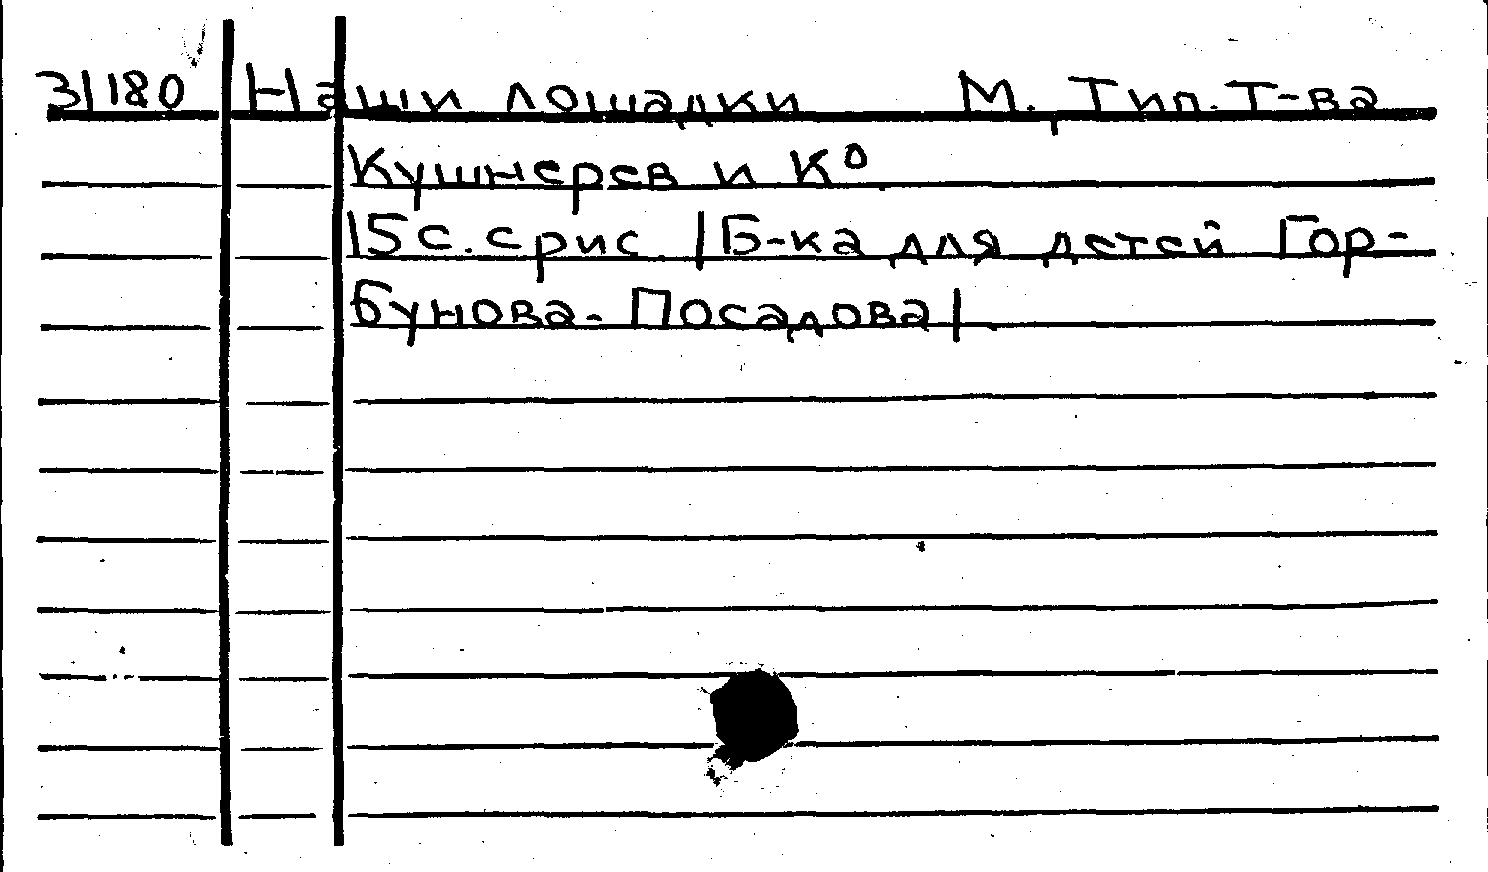 З/180 Наши лошадки М. Тип. Т-ва
Кушнерев и К°
15 с. с рис. /Б-ка для детей Гор-
бунова-Посадова/.